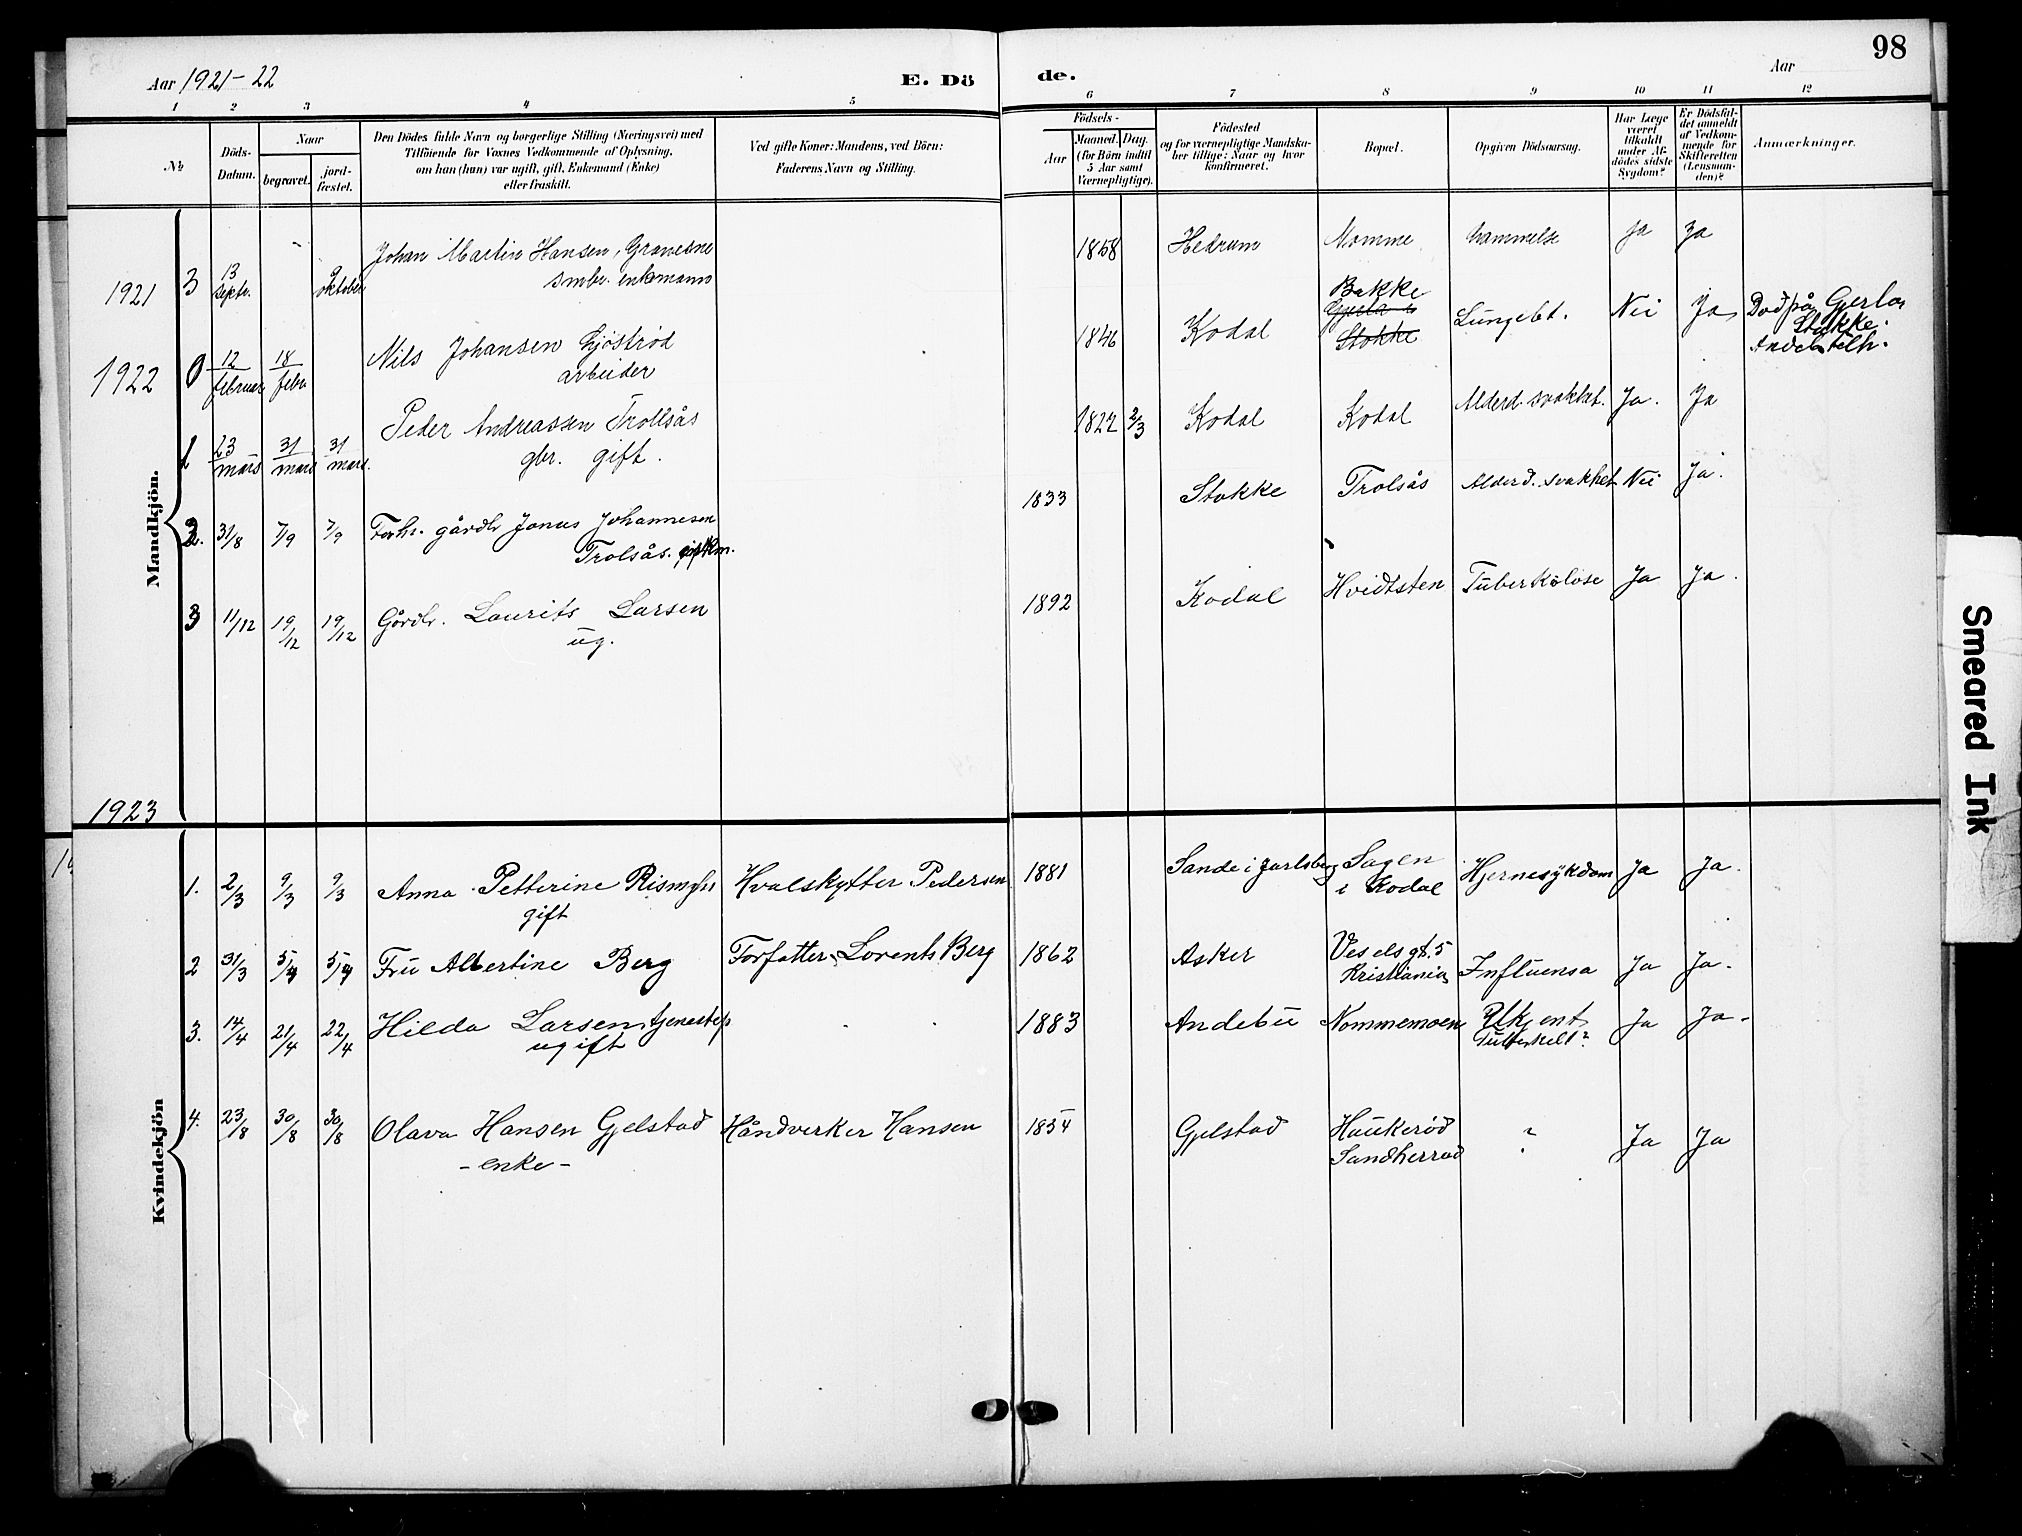 98
Aar 1921-22
E. Dö
de.
Aar
1 2 3 4 5
6 7 8 9 10 11 12
No
Döds-
Datum.
Naar
begravet.
jord-
fæstet.
Den Dödes fulde Navn og borgerlige Stilling (Næringsvei) med
Tilföiende for Voxnes Vedkommende af Oplysning,
om han (hun) var ugift, gift, Enkemand (Enke)
eller fraskilt.
Ved gifte Koner: Mandens, ved Börn:
Faderens Navn og Stilling.
Födsels-
Aar
Maaned.
Dag.
(for Börn indtil
5 Aar samt
Værnepligtige).
Födested
og for værnepligtige Mandska-
ber tillige: Naar og hvor
konfirmeret.
Bopæl.
Opgiven Dödsaarsag.
Har Læge
været
tilkaldt
under Af-
dödes sidste
Sygdom?
Er Dödsfal-
det anmeldt
af Vedkom-
mende for
Skifteretten
(Lensman-
den)?
Anmærkninger.
Mandkjön.
1921 3 13 septr. 9 oktober Johan Martin Hansen, Gravesne
smbr. enkemann
1858 Hedrum Momme Gammelse Ja Ja
1922 0 12 februar 18 febr Nils Johansen Gjöströd
arbeider
1846 Kodal Bakke
Stokke
Lungebet. Nei Ja Död på Gjerla
Stokke.
1 23 mars 31 mars 31 mars. Peder Andreassen Trollsås
gbr. gift.
1822 2/3 Kodal Kodal Alderd. svakhet. Ja. Ja
2. 31/8 7/9 7/9 Forh. gårdbr Jonas Johannesen
Trolsås. giftkm.
1833 Stokke Trolsås Alderd. svakhet Nei Ja.
3 11/12 19/12 19/12 Gårdbr. Laurits Larsen
ug.
1892 Kodal Hvidtsten Tuberkolose Ja Ja.
1923
Kvindekjön
1. 2/3 9/3 9/3 Anna Petterine Rismyhr Hvalskytter Pedersen
gift
1881 Sande i Jarlsberg Sagen
i Kodal
Hjernesykdom Ja Ja.
2 31/3 5/4 5/4 Fru Albertine Berg Forfatter Lorents Berg
1862 Asker Vesels gt. 5
Kristiania
Influensa Ja Ja.
3. 14/4 21/4 22/4 Hilda Larsen tjenestep
ugift
1883 Andebu Nommemoen Ukjent
Tuberkell?
Ja Ja.
4. 23/8 30/8 30/8 Olava Hansen Gjelstad Håndverker Hansen
- enke -
1854 Gjelstad Haukeröd
Sandherrad
? Ja Ja
Smeared Ink